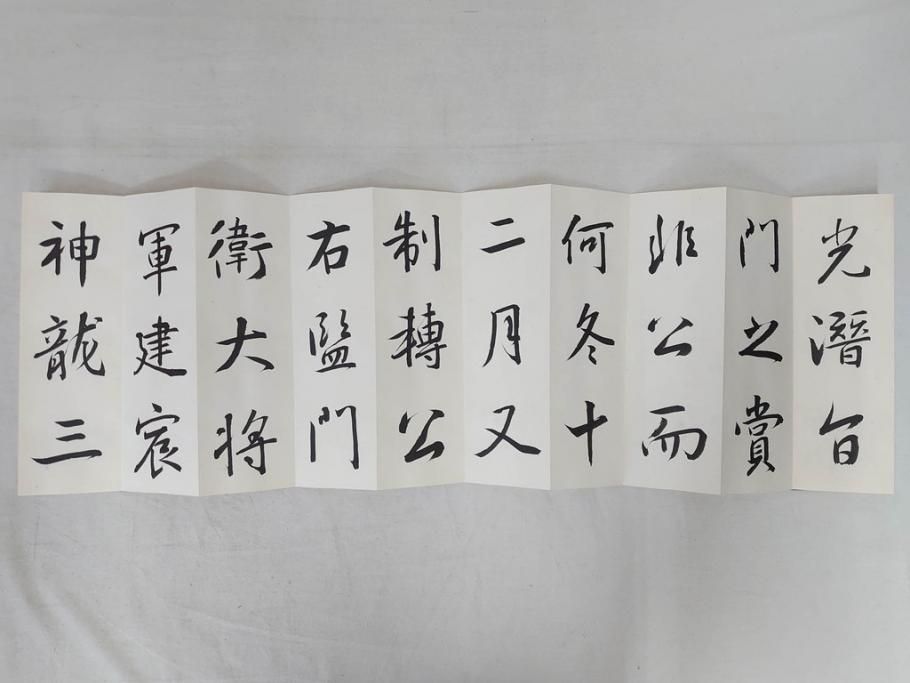 光潛旨
門之賞
非公而
何冬十
二月又
制轉公
右監門
衛大将
軍建宸
神龍三